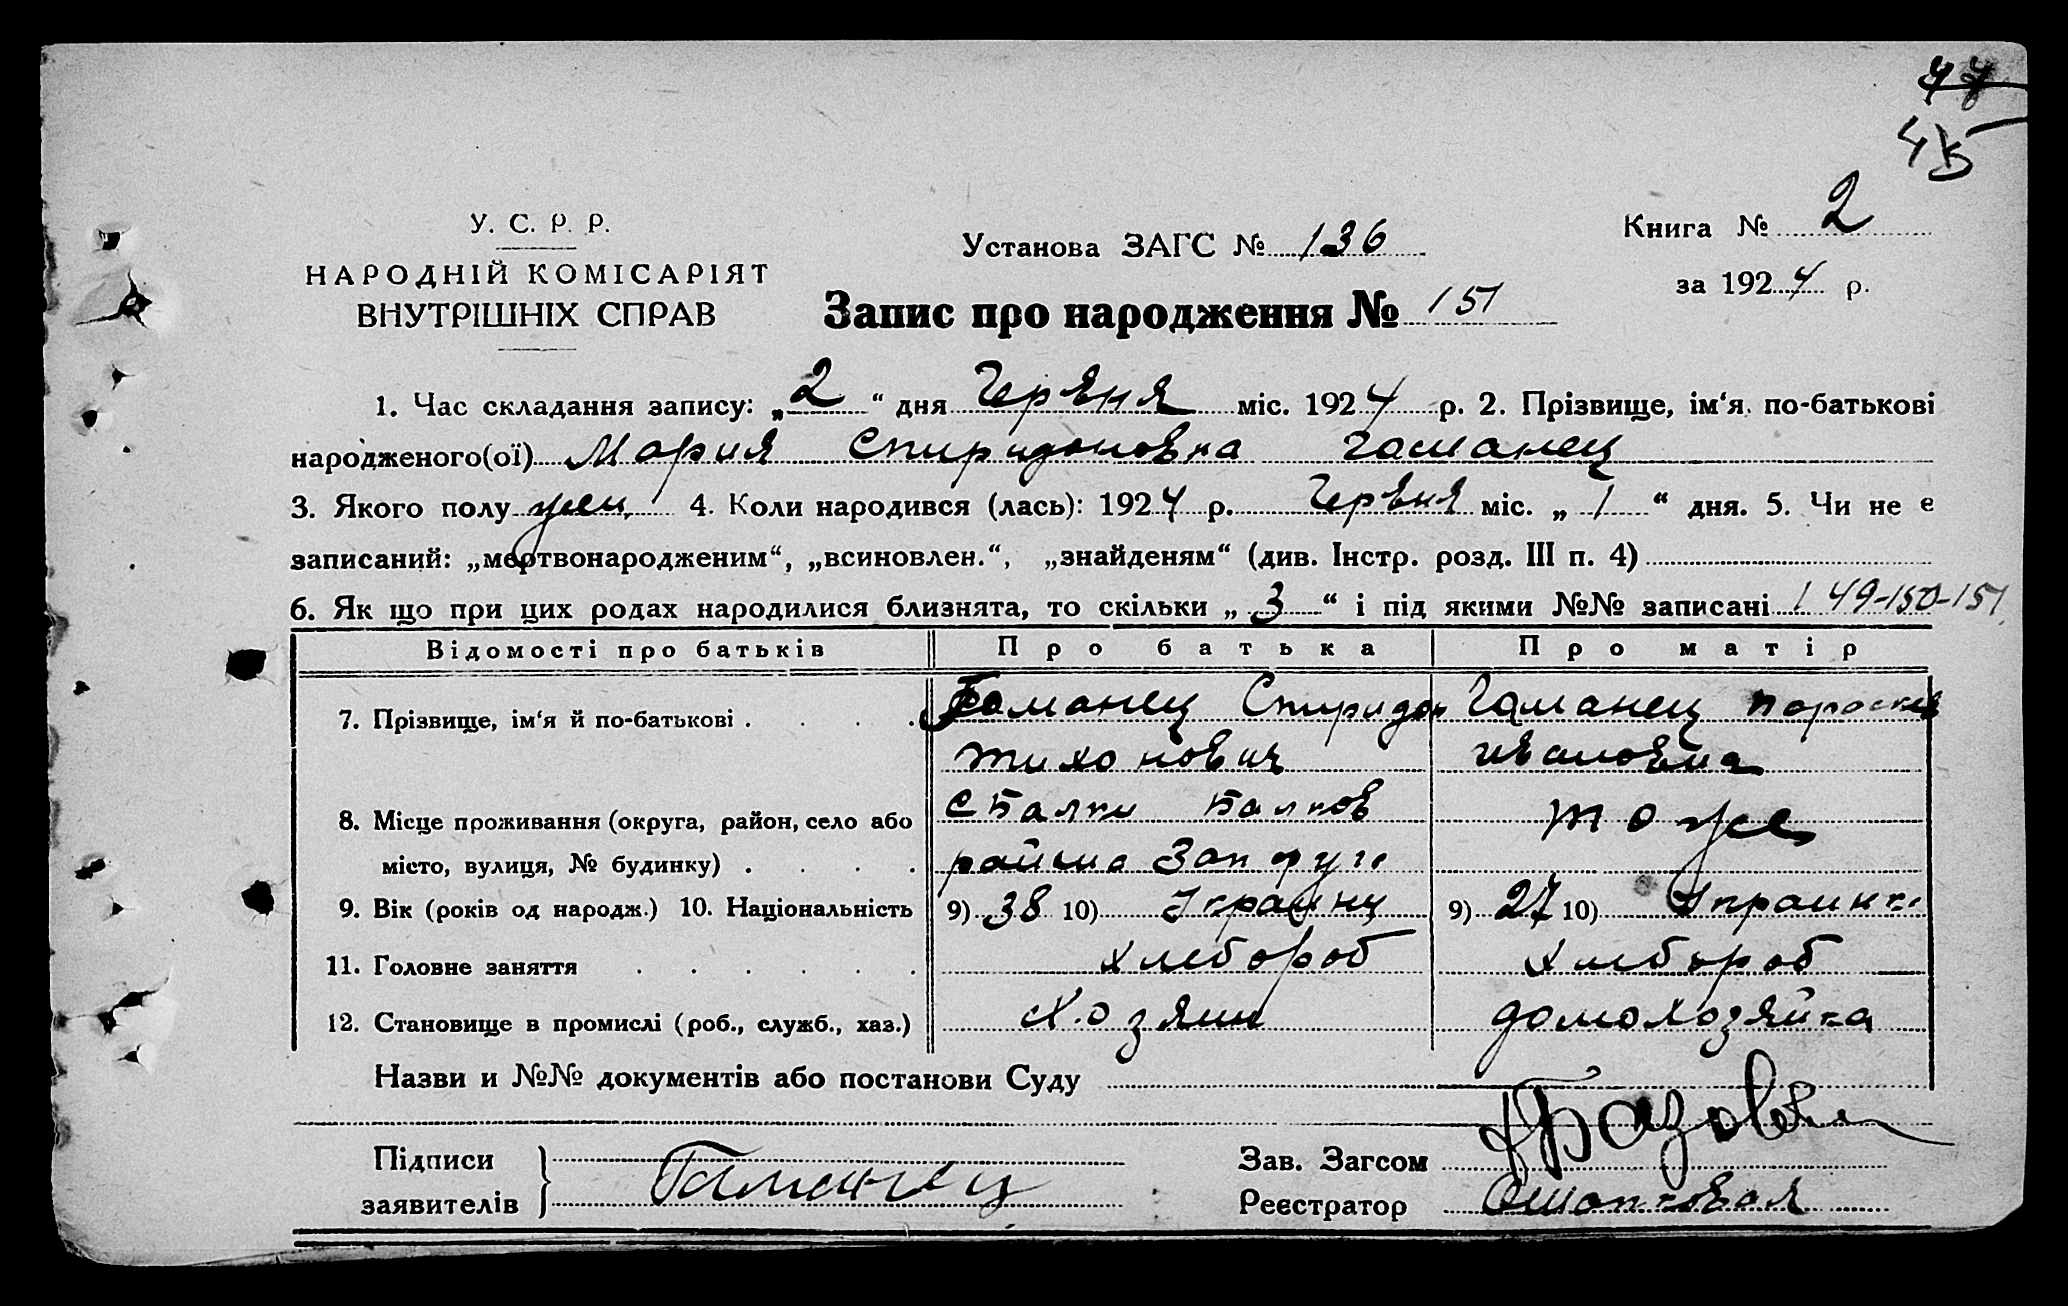 44
45
У. С. Р. Р.
НАРОДНІЙ КОМІСАРІЯТ
ВНУТРІШНІХ СПРАВ
Установа ЗАГС № 136
Книга № 2
за 1924 р.
Запис про народження № 151
1. Час складання запису: „2“ дня Червня міс. 1924 р. 2. Прізвище, ім‘я, по-батькові
народженого(ої) Мария Спиридоновна Гаманец
3. Якого полу жен. 4. Коли народився (лась): 1924 р. Червня міс. „1“ дня. 5. Чи не є
записаний: „мертвонародженим“, „всиновлен.“, „знайденям“ (див. Інстр. розд. III п. 4)
6. Як що при цих родах народилися близнята, то скільки „3“ і під якими №№ записані 149-150-151
Відомості про батьків Про батька Про матір
7. Прізвище, ім‘я й по-батькові . . . . Гаманец Спиридон Гаманец Пороскев
Тихонович Ивановна
8. Місце проживання (округа, район, село або с Балки Балков тоже
місто, вулиця, № будинку) . . . . района Зап округ
9. Вік (років од народж.) 10. Національність 9) 38 10) Украинц 9) 27 10) Украинк
11. Головне заняття . . . . . . хлебороб хлебороб
12. Становище в промислі (роб., служб., хаз.) хозяин домохозяйка
Назви и №№ документів або постанови Суду
Підписи
заявителів } Гаманец
Зав. Загсом
Реєстратор